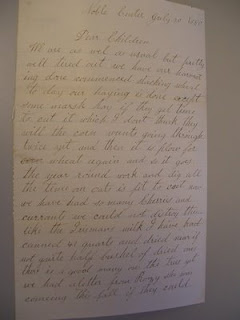 Noble Center July 20
Dear Children
We are as well as usual but pretty
well tired out we have our harvest
ing done commenced thrashing wheat
to day our haying is done except
some marsh hay if they get time
to cut it which I dont think they
will the corn wants going through
twice yet and then it is plow for
wheat again and so it goes
the year round work and dig all
the time an oats is fit to cut
we have had so many cherries and
currants we could not destroy them
like the milk I have
canned 41 quarts and dried near if
not quite half bushel of dried one
that is a good many for two
we had a letter from they was
coming this fall if they could